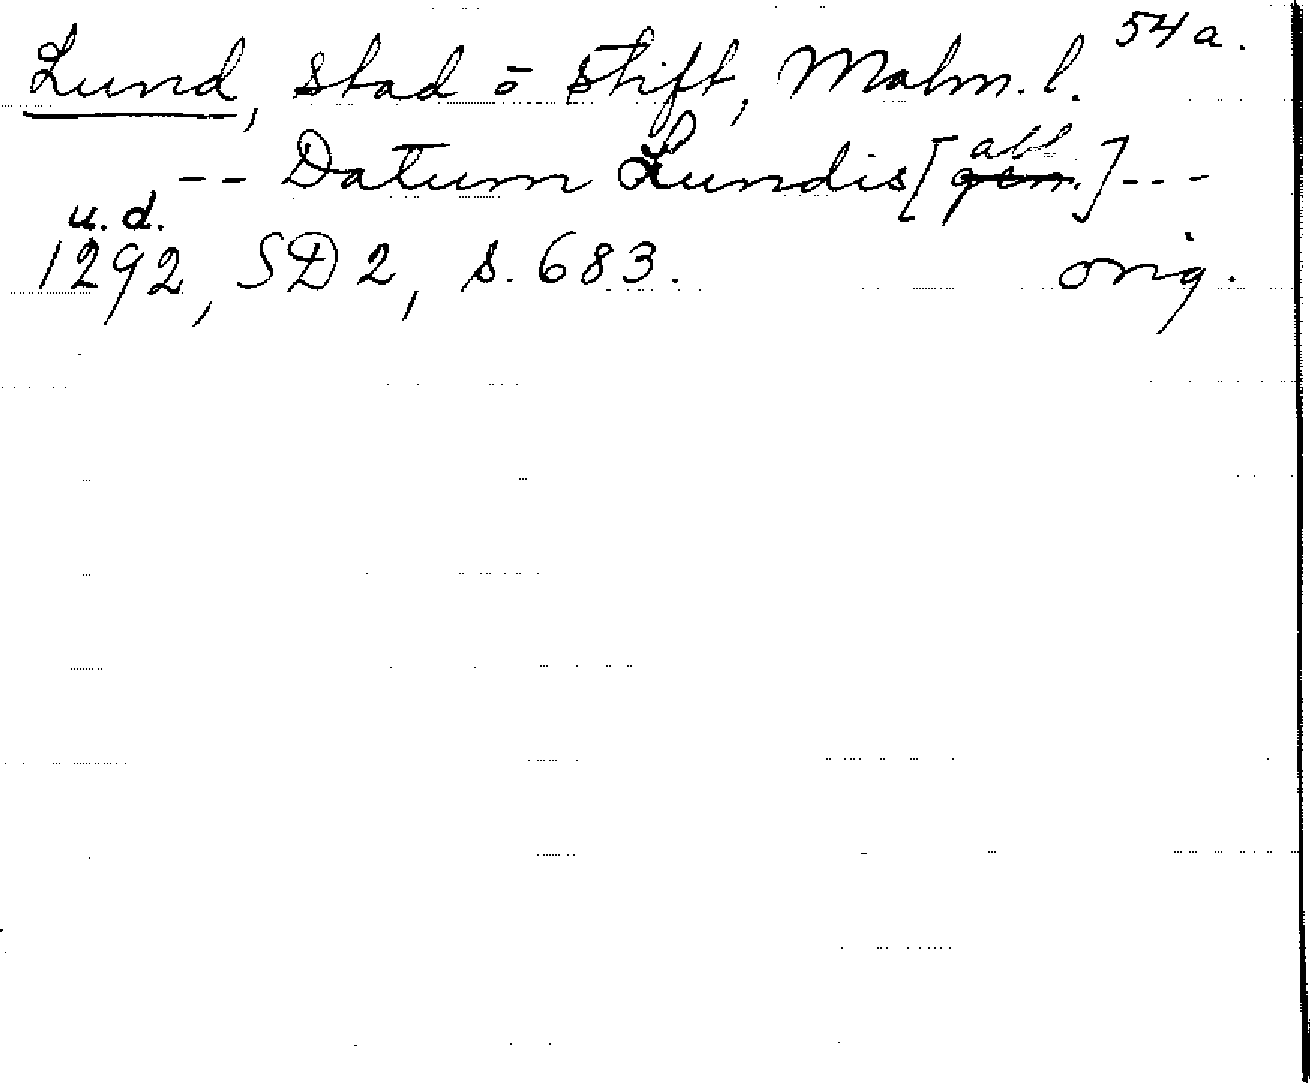 54a.
Lund, Stad o Stift, Malm. l.
-- Datum Lundis [abl gen.] ---
u. d.
1292, SD 2, s. 683. orig.